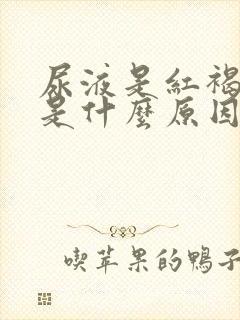 尿液是紅褐
是什麼原因
喫苹果的鴨子